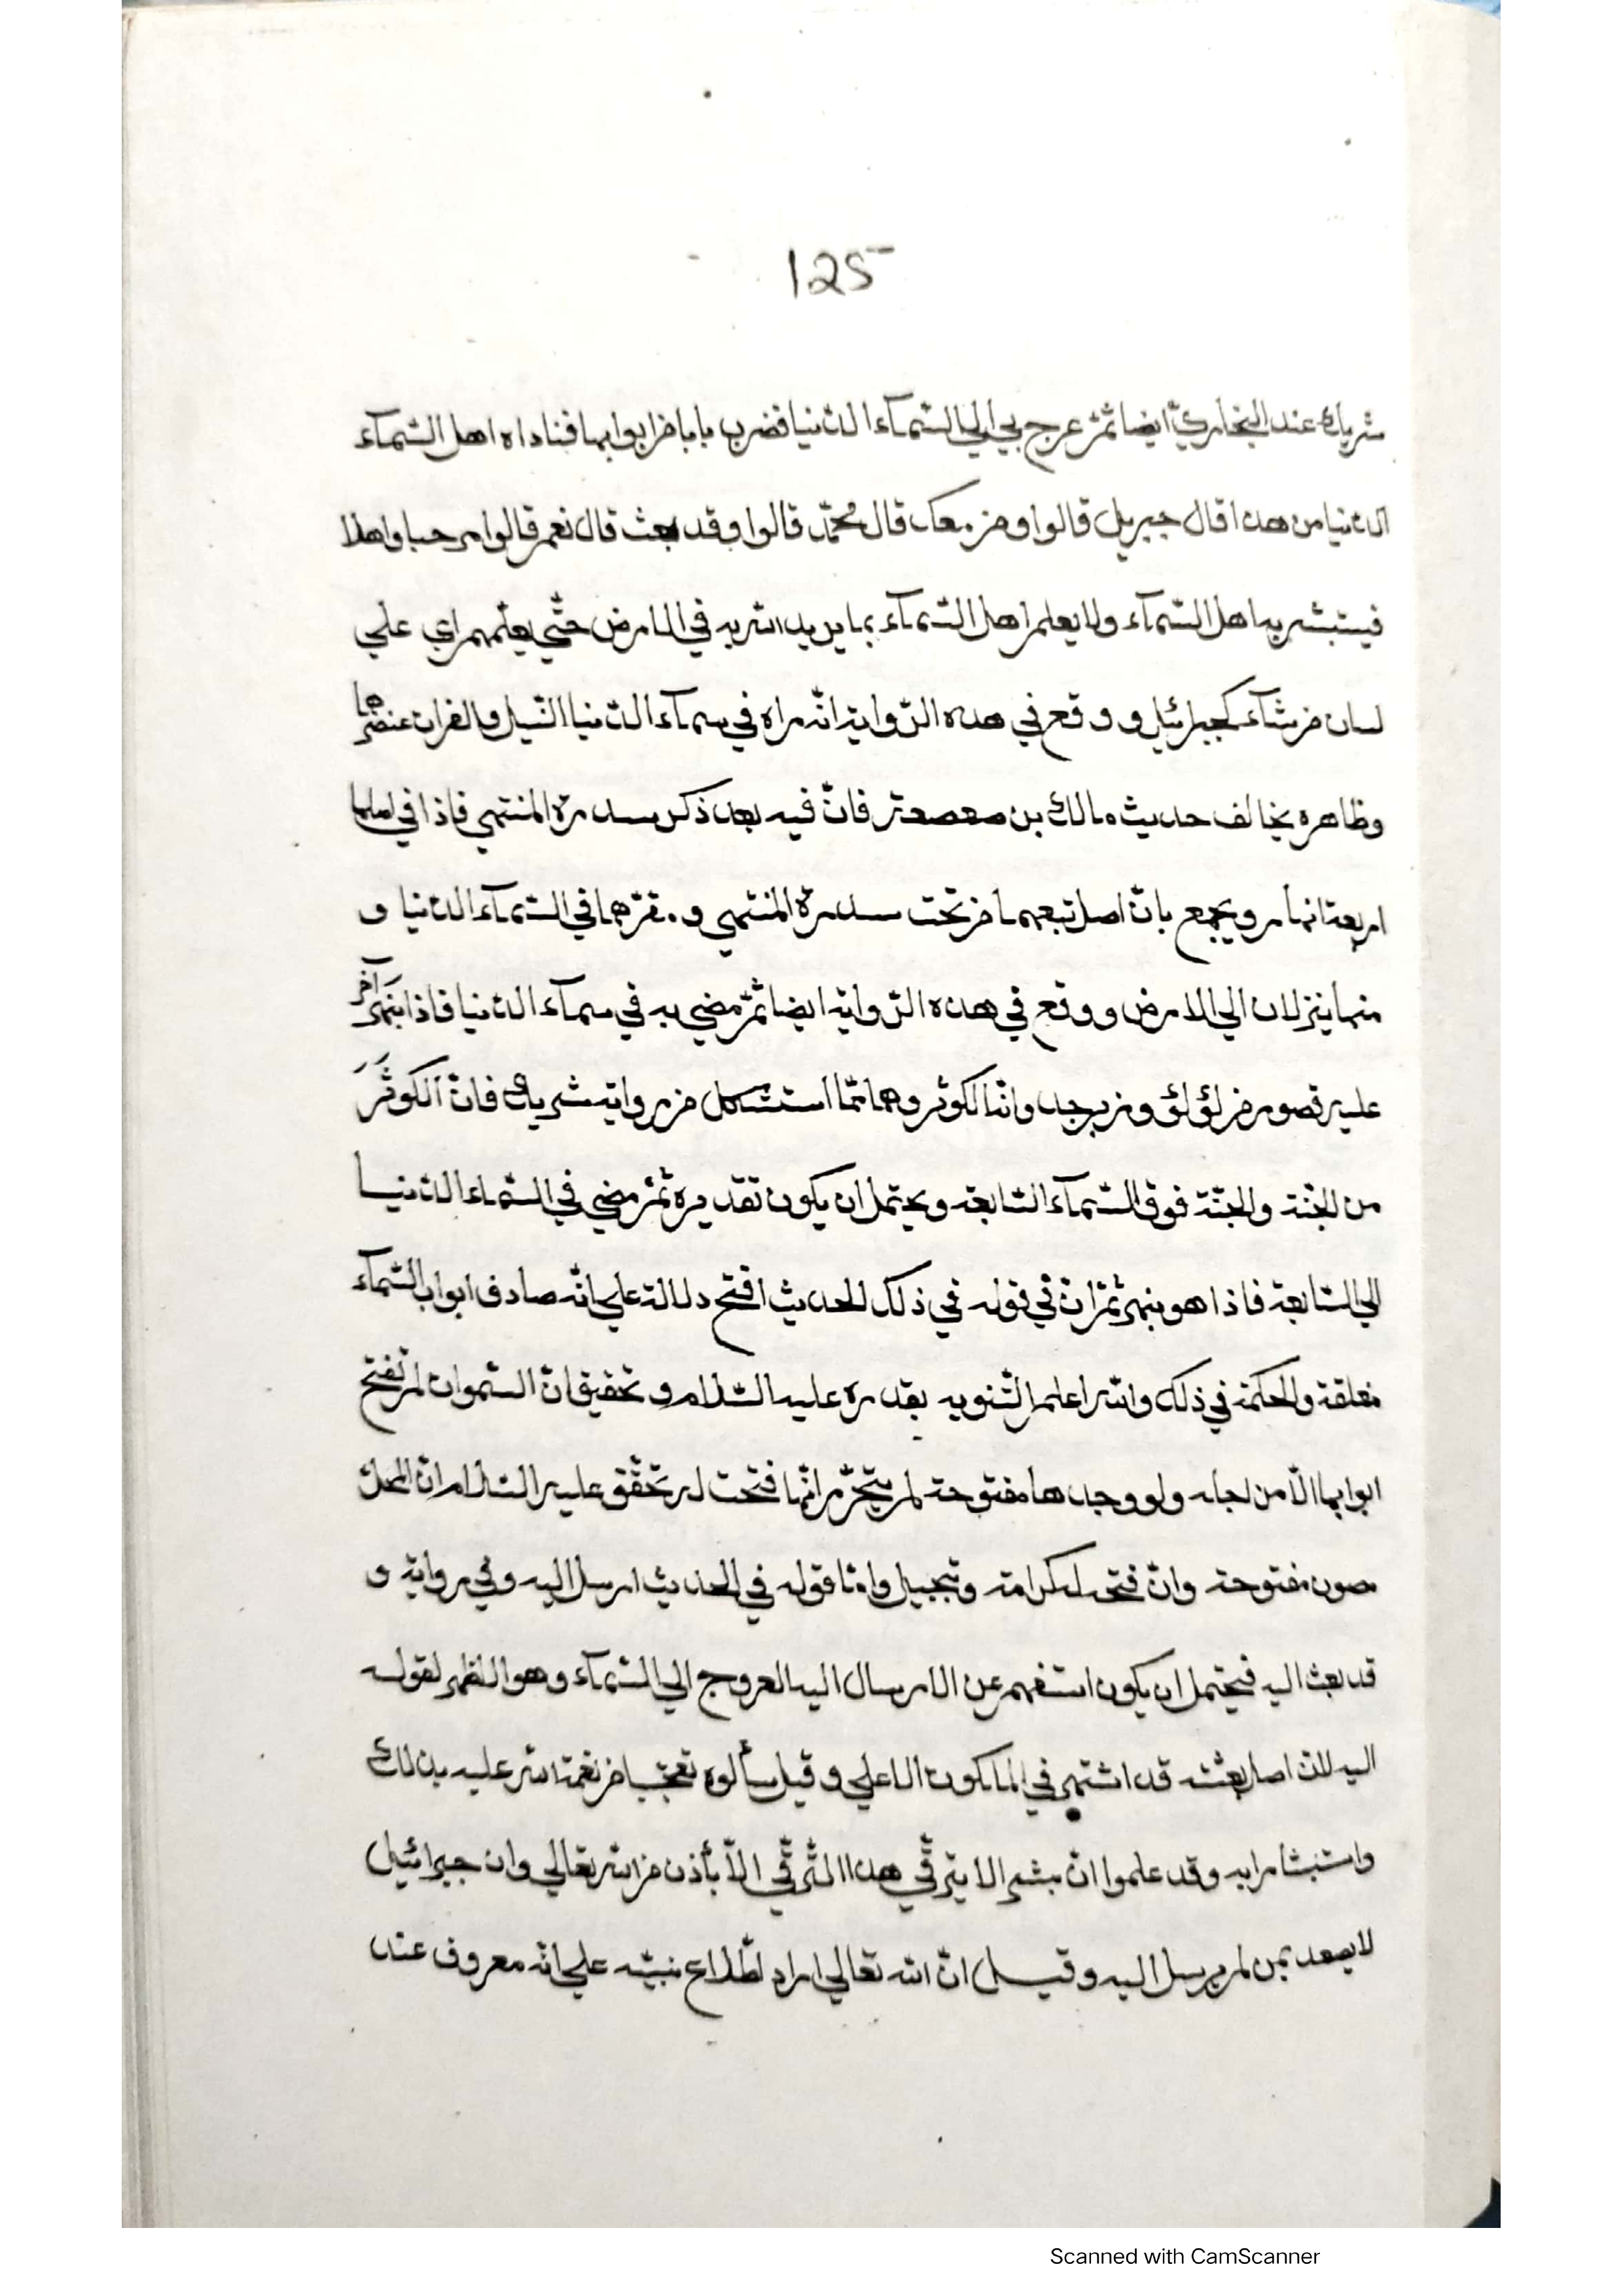 125
شريك عند البخاريّ ايضا ثمّ عرج بي الي السّمآء الدّنيا فضرب بابا من ابوابها فناداه اهل السّمآء
الدّنيا من هذا قال جبريل قالوا ومن معك قال محمّد قالوا وقد بعث قال نعم قالوا مرحبا واهلا
فيستبشر به اهل السّمآء ولا يعلم اهل السّمآء بما يريد الله به في الارض حتّي يعلّمهم اي علي
لسان من شآء كجبرائيل و وقع في هذه الرّواية انّه راه في سمآء الدّنيا النّيل والفرات عنصرهما
وظاهره يخالف حديث مالك بن صعصعة فانّ فيه بعد ذكر سدرة المنتهي فاذا في اصلها
اربعة انهار ويجمع بانّ اصل تبعهما من تحت سدرة المنتهي و مقرّهما في السّمآء الدّنيا و
منها ينزلان الي الارض و وقع في هذه الرّواية ايضا ثمّ مضي به في سمآء الدّنيا فاذا بنهر آخر
عليه قصور من لؤلؤ وزبرجد وانّه الكوثر وهو ممّا استشكل من رواية شريك فانّ الكوثَرَ
من الجنّة والجنّة فوق السّمآء السّابعة ويحتمل ان يكون تقديره ثمّ مضي في السّماء الدّنيا
الي السّابعة فاذا هو بنهر ثمّ انّ في قوله في ذلك الحديث افتح دلالة علي انّه صادف ابواب السّمآء
مغلقة والحكمة في ذلك والله اعلم التّنويه بقدره عليه السّلام و تحقيق انّ السّموات لم تفتح
ابوابها الّا من اجله ولو وجدها مفتوحة لم يتحرّر انّها فتحت له تحقّق عليه السّلام انّ المحلّ
مصون مفتوحة وانّ فتحه له كرامة وتبجيل وامّا قوله في الحديث ارسل اليه وفي رواية و
قد بعث اليه فيحتمل ان يكون استفهم عن الارسال اليه العروج الي السّمآء وهو الظهر لقوله
اليه لانّ اصل بعثه قد اشتهر في الملكوت الاعلي و قيل سألوه تعجّبا من نعمة الله عليه بذلك
واستبشارا به وقد علموا انّ بشرا لا يترقّي هذا الثّرقّي الّا بأذن من الله تعالي وان جبرائيل
لا يصعد بمن لم يرسل اليه وقيل انّ الله تعالي اراد اطّلاع نبيّه علي انّه معروف عند
Scanned with CamScanner